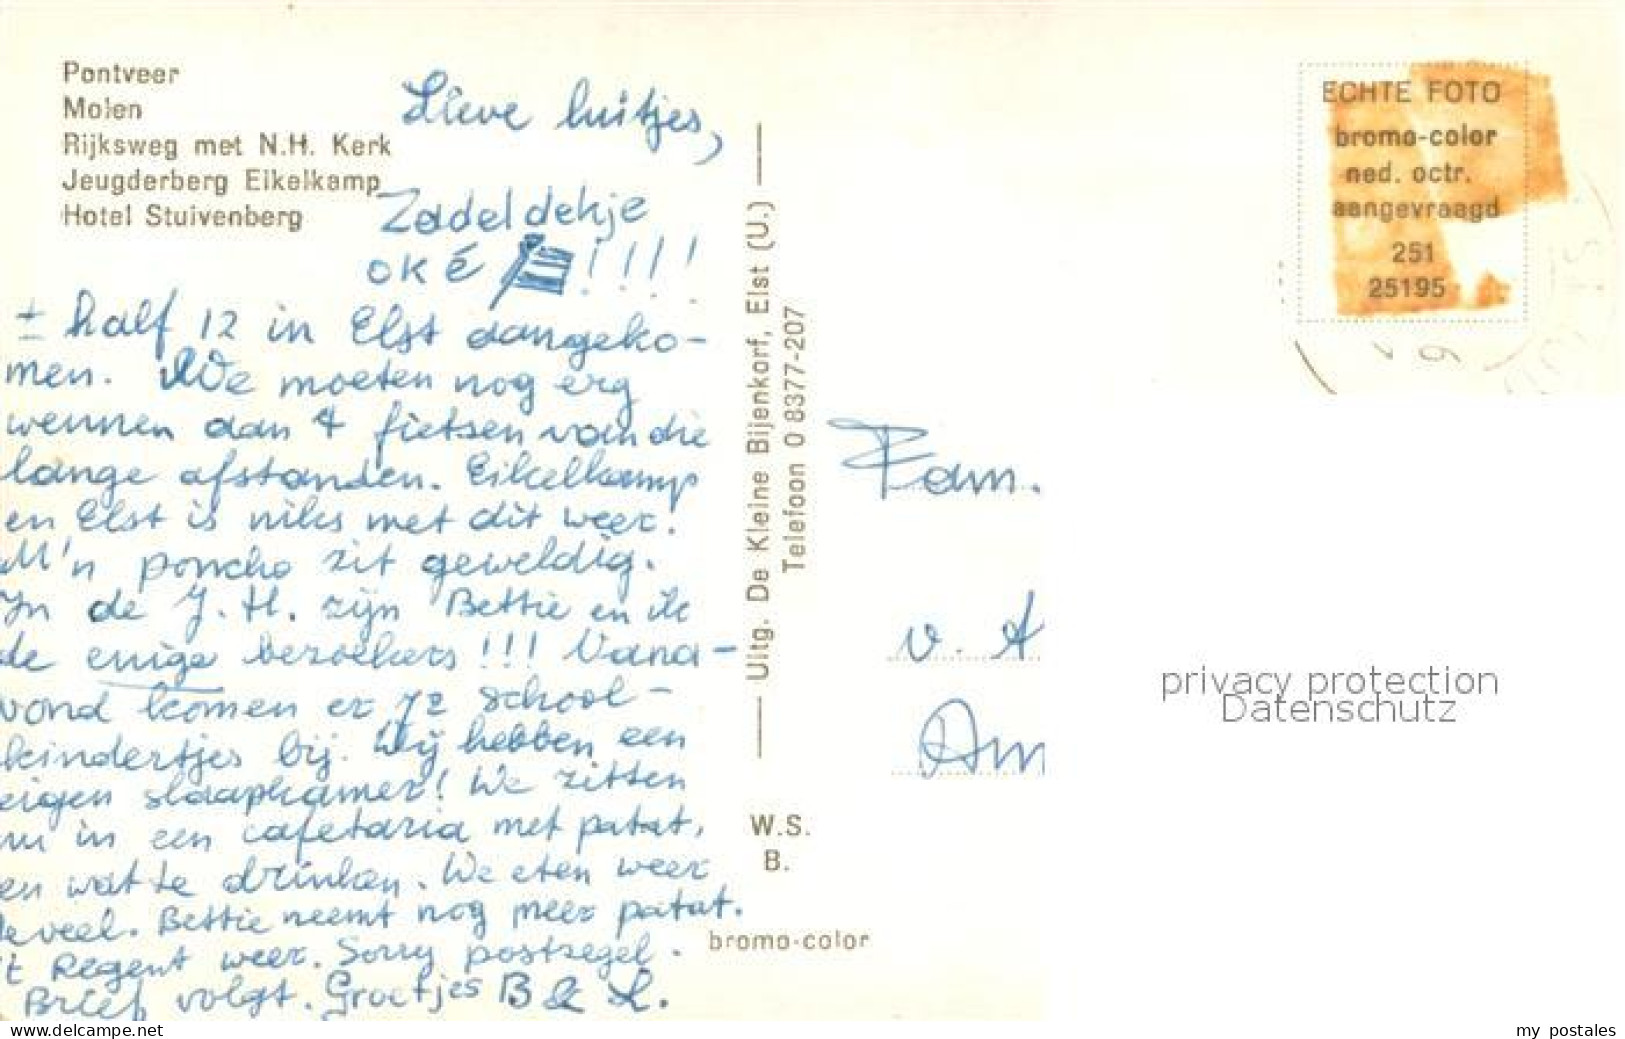 Pontveer
Molen
Rijksweg met N.H. Kerk
Jeugderberg Eikelkamp
Hotel Stuivenberg
Lieve luitjes,
Zadeldekje
oké !!!!
± half 12 in Elst aangeko-
men. We moeten nog erg
wennen aan 't fietsen van die
lange afstanden. Eikelkamp
en Elst is niks met dit weer!
M'n poncho zit geweldig.
In de J.H. zijn Bettie en ik
de enige bezoekers!!! Vana-
vond komen er 72 school-
kindertjes bij. Wij hebben een
eigen slaapkamer! We zitten
nu in een cafetaria met patat,
en wat te drinken. We eten weer
te veel. Bettie neemt nog meer patat.
't Regent weer. Sorry postzegel.
Brief volgt. Groetjes B & L.
Uitg. De Kleine Bijenkorf, Elst (U.)
Telefoon 0 8377-207
W.S.
B.
bromo-color
ECHTE FOTO
bromo-color
ned. octr.
aangevraagd
251
25195
Fam.
v. A
Am
privacy protection
Datenschutz
https://www.delcampe.net
my postales